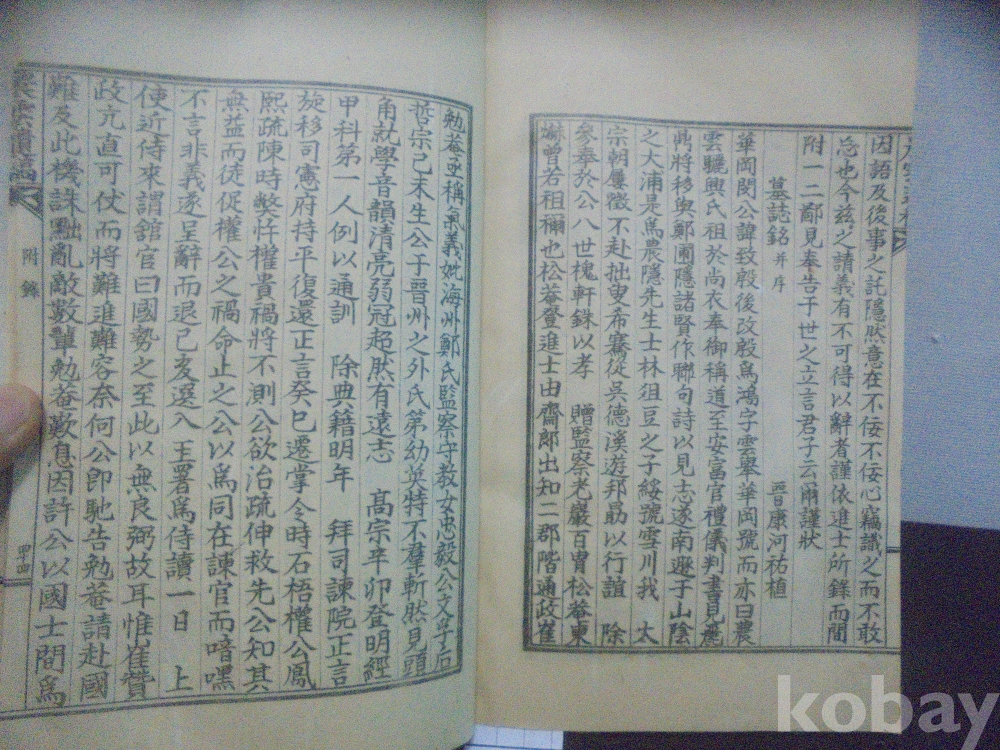 因語及後事之託隱然意在不佞不佞心竊識之而不敢
忘也今茲之請義有不可得以辭者謹依進士所錄而間
附一二鄙見奉告于世之立言君子云爾謹狀
墓誌銘 并序 晉康河祐植
華岡閔公諱致殷後改殷爲鴻字雲擧華岡號而亦曰農
雲驪興氏祖於尚衣奉御稱道至安富官禮儀判書見麗
鼎將移與鄭圃隱諸賢作聯句詩以見志遂南遯于山陰
之大浦是爲農隱先生士林俎豆之子綏號雪川我 太
宗朝屢徵不赴拙叟希騫從吳德溪遊邦勗以行誼 除
參奉於公八世槐軒銖以孝 贈監察老巖百胄松菴東
爀曾若祖禰也松菴登進士由齋郎出知二郡階通政崔
勉菴亟稱氣義妣海州鄭氏監察守敎女忠毅公文孚后
哲宗己未生公于晉州之外氏第幼英特不羣斬然見頭
角就學音韻淸亮弱冠超然有遠志 高宗辛卯登明經
甲科第一人例以通訓 除典籍明年 拜司諫院正言
旋移司憲府持平復還正言癸巳遷掌令時石梧權公鳳
熙疏陳時弊忤權貴禍將不測公欲治疏伸救先公知其
無益而徒促權公之禍命止之公以爲同在諫官而喑嘿
不言非義遂呈辭而退己亥選入 王署爲侍讀一日 上
使近侍來謂舘官曰國勢之至此以無良弼故耳惟崔贊
政亢直可仗而將難進難容奈何公卽馳告勉菴請赴國
難及此機誅黜亂敵數輩勉菴歎息因許公以國士間爲
附錄
kobay